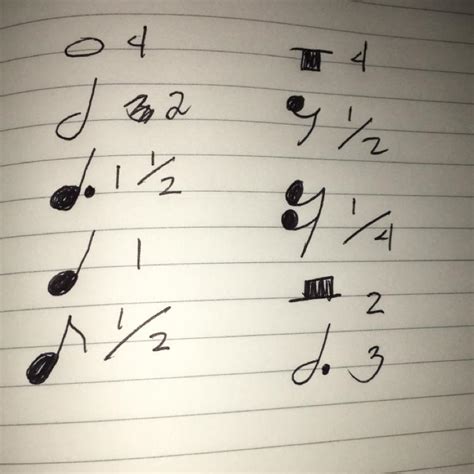 4
2
1 1/2
1
1/2
4
1/2
1/4
2
3